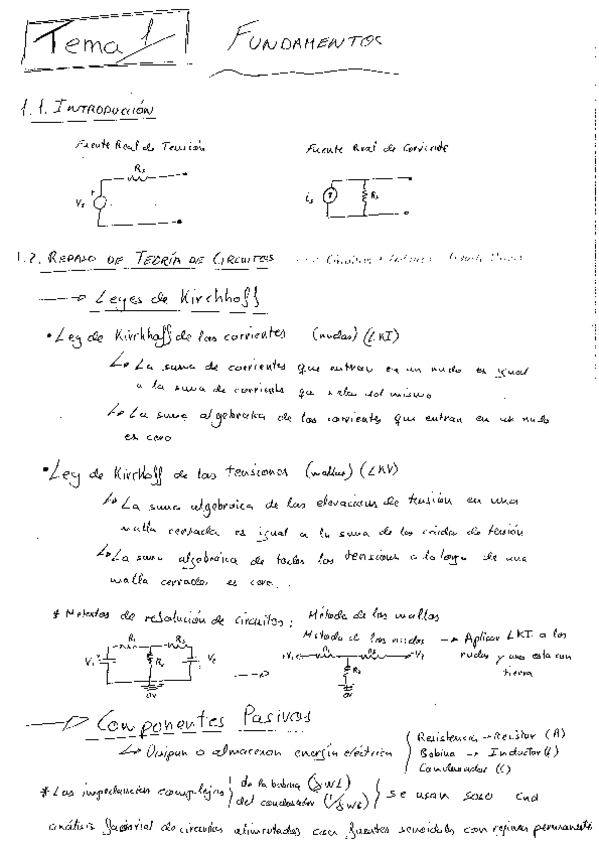 Tema 1 FUNDAMENTOS
1.1. INTRODUCCIÓN
Fuente Real de Tensión Fuente Real de Corriente
Rs
Vs + is Rs
1.2. REPASO DE TEORÍA DE CIRCUITOS
Leyes de Kirchhoff
• Ley de Kirchhoff de las corrientes (nudos) (LKI)
La suma de corrientes que entran en un nudo es igual
a la suma de corrientes que salen del mismo
La suma algebraica de las corrientes que entran en un nudo
es cero
• Ley de Kirchhoff de las tensiones (mallas) (LKV)
La suma algebraica de las elevaciones de tensión en una
malla cerrada es igual a la suma de las caídas de tensión
La suma algebraica de todas las tensiones a lo largo de una
malla cerrada es cero.
* Métodos de resolución de circuitos: Método de las mallas
Método de los nudos → Aplicar LKI a los
nudos y uno esta con
tierra
R1 R3
V1 + R2 V2
0V
+V1 R1 R3 V2
R2
0V
Componentes Pasivos
Disipan o almacenan energía eléctrica
Resistencia → Resistor (R)
Bobina → Inductor (L)
Condensador (C)
* Las impedancias complejas de la bobina (jWL)
del condensador (1/jWC) se usan solo en el
análisis fasorial de circuitos alimentados con fuentes senoidales con régimen permanente